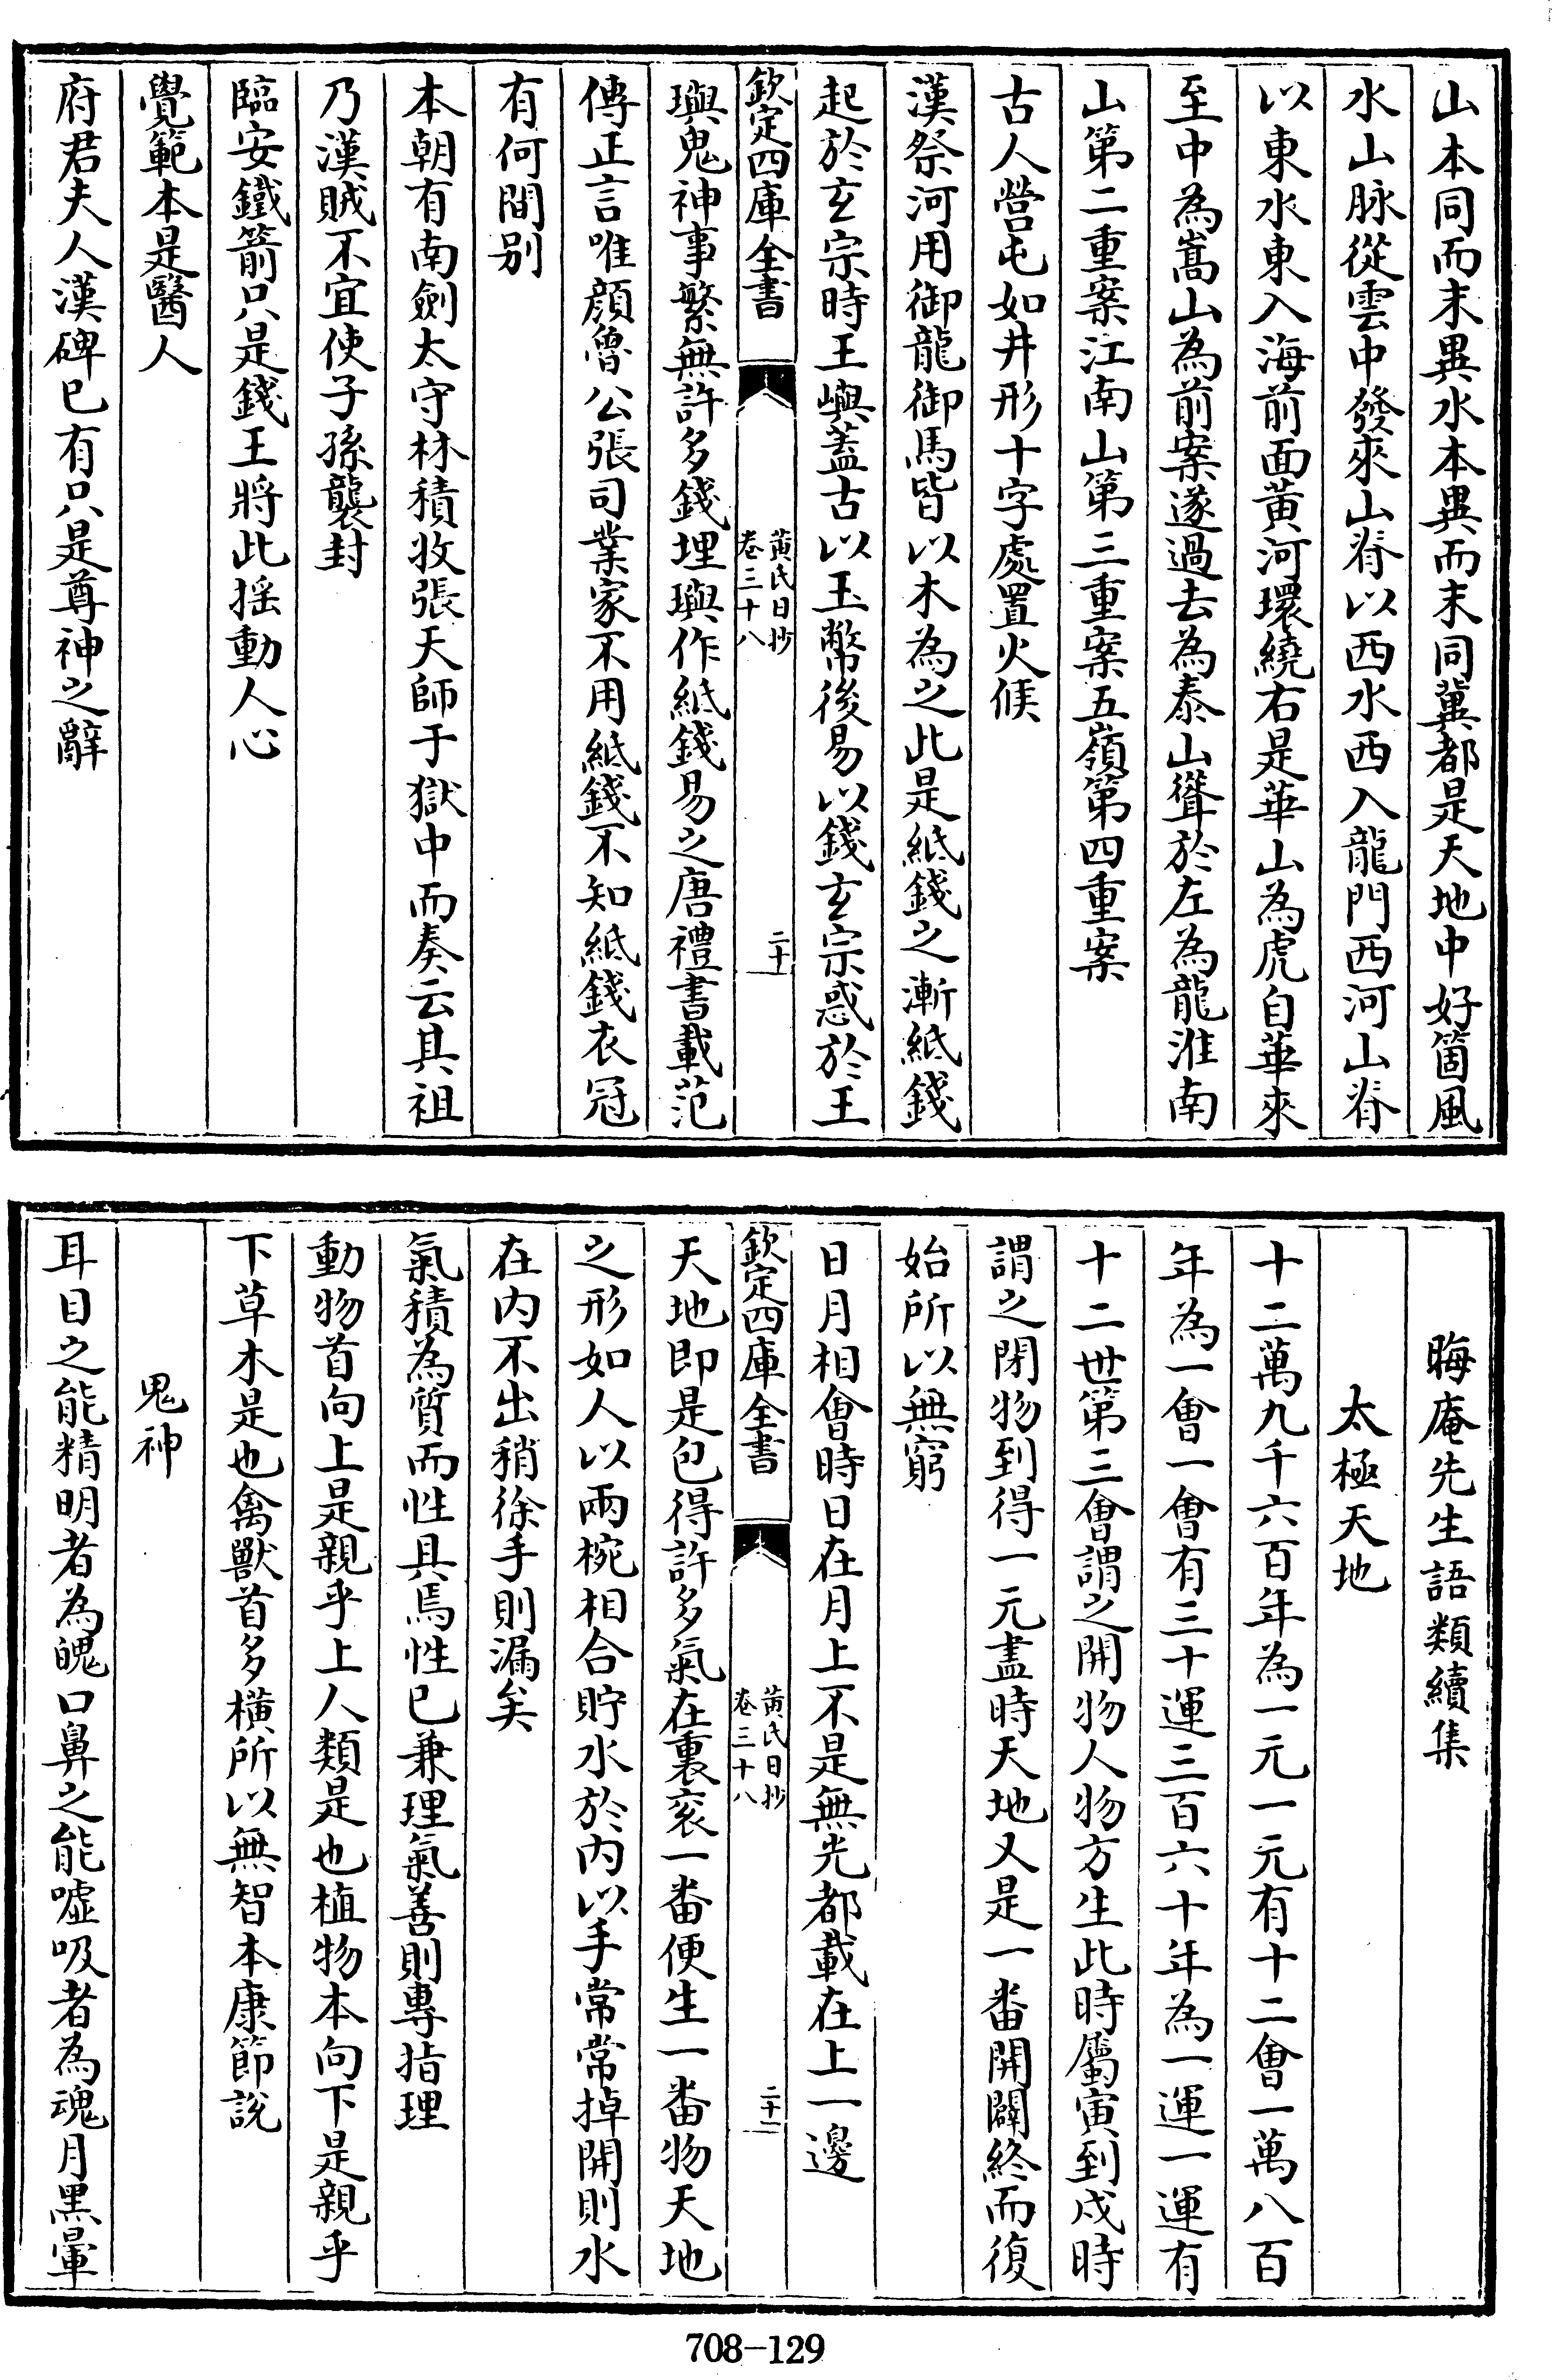 山本同而末異水本異而末同冀都是天地中好箇風
水山脉從雲中發來山脊以西水西入龍門西河山脊
以東水東入海前面黄河環繞右是華山為虎自華來
至中為嵩山為前案遂過去為泰山聳於左為龍淮南
山第二重案江南山第三重案五嶺第四重案
古人營屯如井形十字處置火候
漢祭河用御龍御馬皆以木為之此是紙錢之漸紙錢
起於玄宗時王嶼蓋古以玉幣後易以錢玄宗惑於王
欽定四庫全書
黄氏日抄
卷三十八
二十一
璵鬼神事繁無許多錢埋璵作紙錢易之唐禮書載范
傳正言唯顔魯公張司業家不用紙錢不知紙錢衣冠
有何間别
本朝有南劍太守林積收張天師于獄中而奏云其祖
乃漢賊不宜使子孫襲封
臨安鐵箭只是錢王將此揺動人心
覺範本是醫人
府君夫人漢碑已有只是尊神之辭
晦庵先生語類續集
太極天地
十二萬九千六百年為一元一元有十二會一萬八百
年為一會一會有三十運三百六十年為一運一運有
十二世第三會謂之開物人物方生此時屬寅到戌時
謂之閉物到得一元盡時天地又是一番開闢終而復
始所以無窮
日月相會時日在月上不是無光都載在上一邊
欽定四庫全書
黄氏日抄
卷三十八
二十二
天地即是包得許多氣在裏衮一番便生一番物天地
之形如人以兩椀相合貯水於内以手常常掉開則水
在内不出稍徐手則漏矣
氣積為質而性具焉性已兼理氣善則專指理
動物首向上是親乎上人類是也植物本向下是親乎
下草木是也禽獸首多横所以無智本康節說
鬼神
耳目之能精明者為魄口鼻之能噓吸者為魂月黑暈
708-129